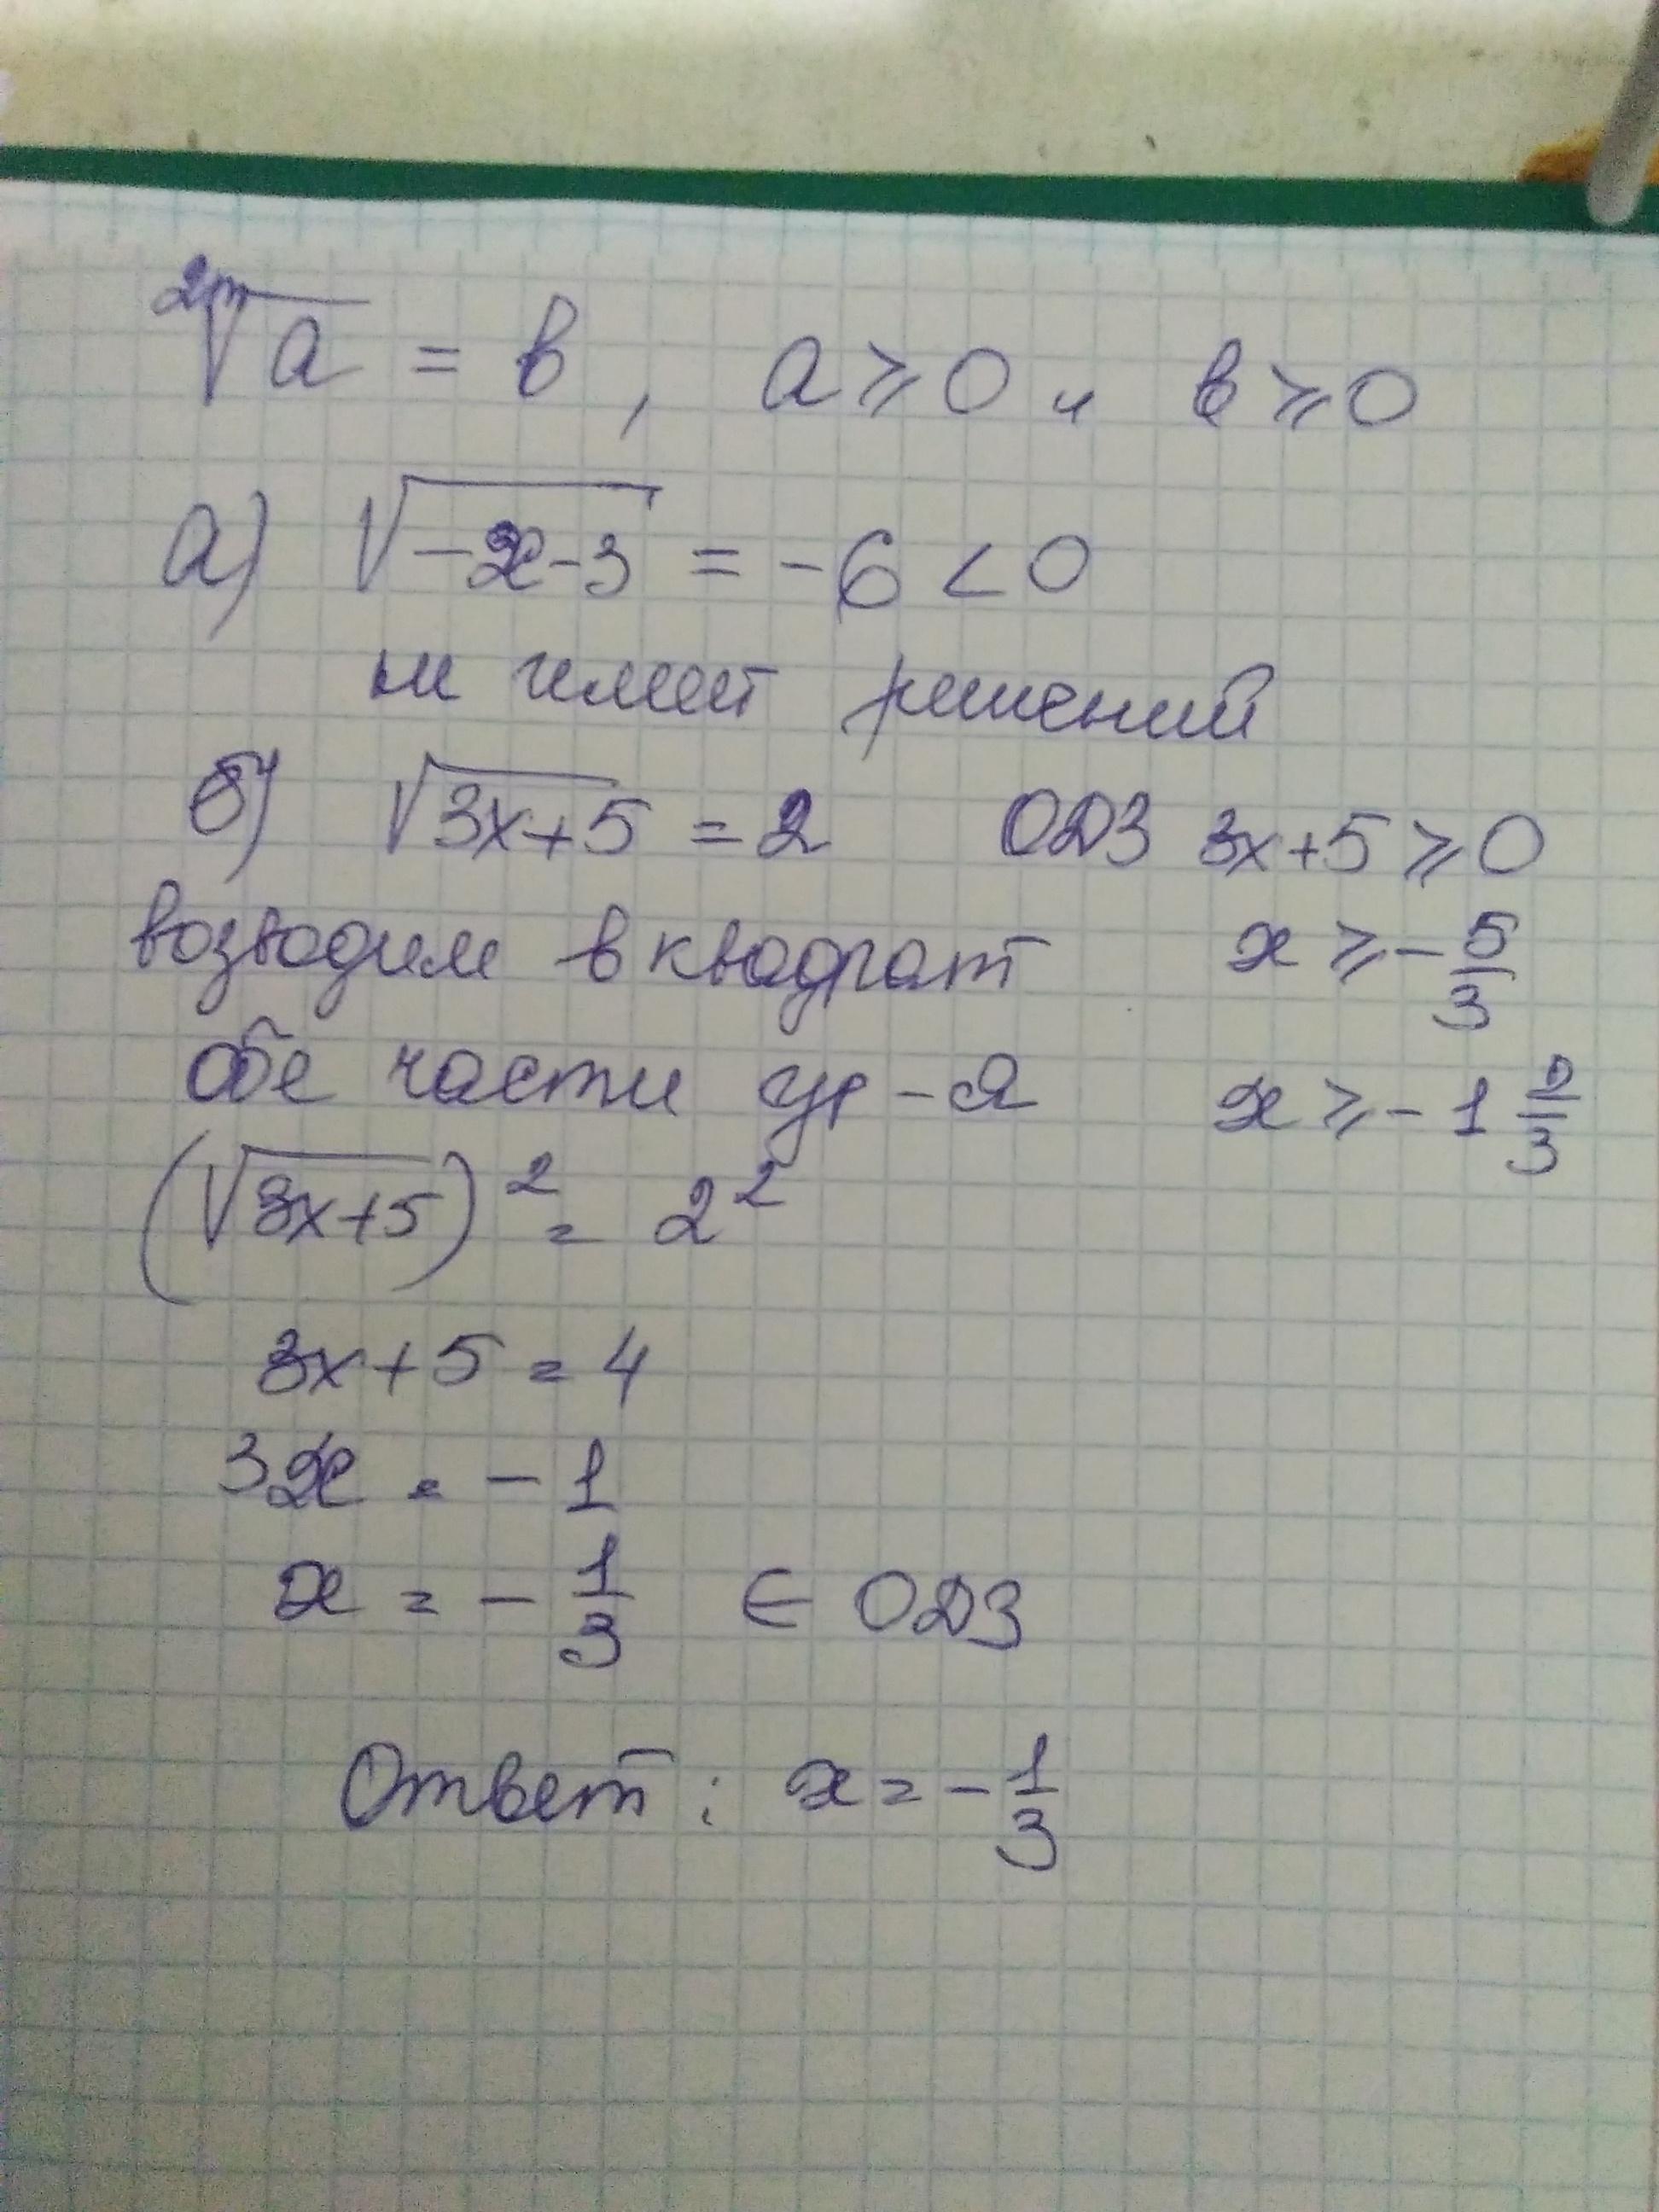 ²ᵐ√a = b, a ≥ 0 и b ≥ 0
а) √(-x-3) = -6 < 0
не имеет решений
б) √(3x+5) = 2 ОДЗ 3x+5 ≥ 0
возводим в квадрат x ≥ -5/3
обе части ур-я x ≥ -1 2/3
(√(3x+5))² = 2²
3x+5 = 4
3x = -1
x = -1/3 ∈ ОДЗ
Ответ: x = -1/3